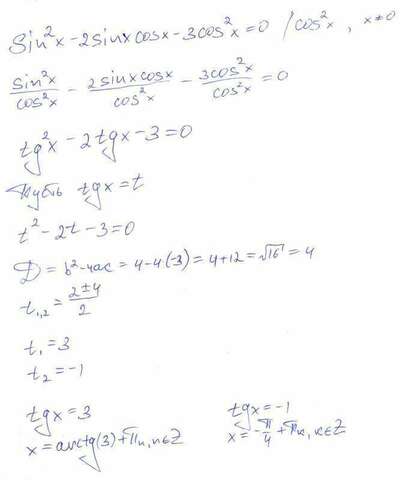 sin²x - 2sinx cosx - 3cos²x = 0 / cos²x, x≠0
sin²x/cos²x - 2sinx cosx/cos²x - 3cos²x/cos²x = 0
tg²x - 2tgx - 3 = 0
Пусть tgx = t
t² - 2t - 3 = 0
D = b² - 4ac = 4 - 4·(-3) = 4 + 12 = √16 = 4
t₁,₂ = 2±4/2
t₁ = 3
t₂ = -1
tgx = 3
x = arctg(3) + πn, n∈Z
tgx = -1
x = -π/4 + πn, n∈Z